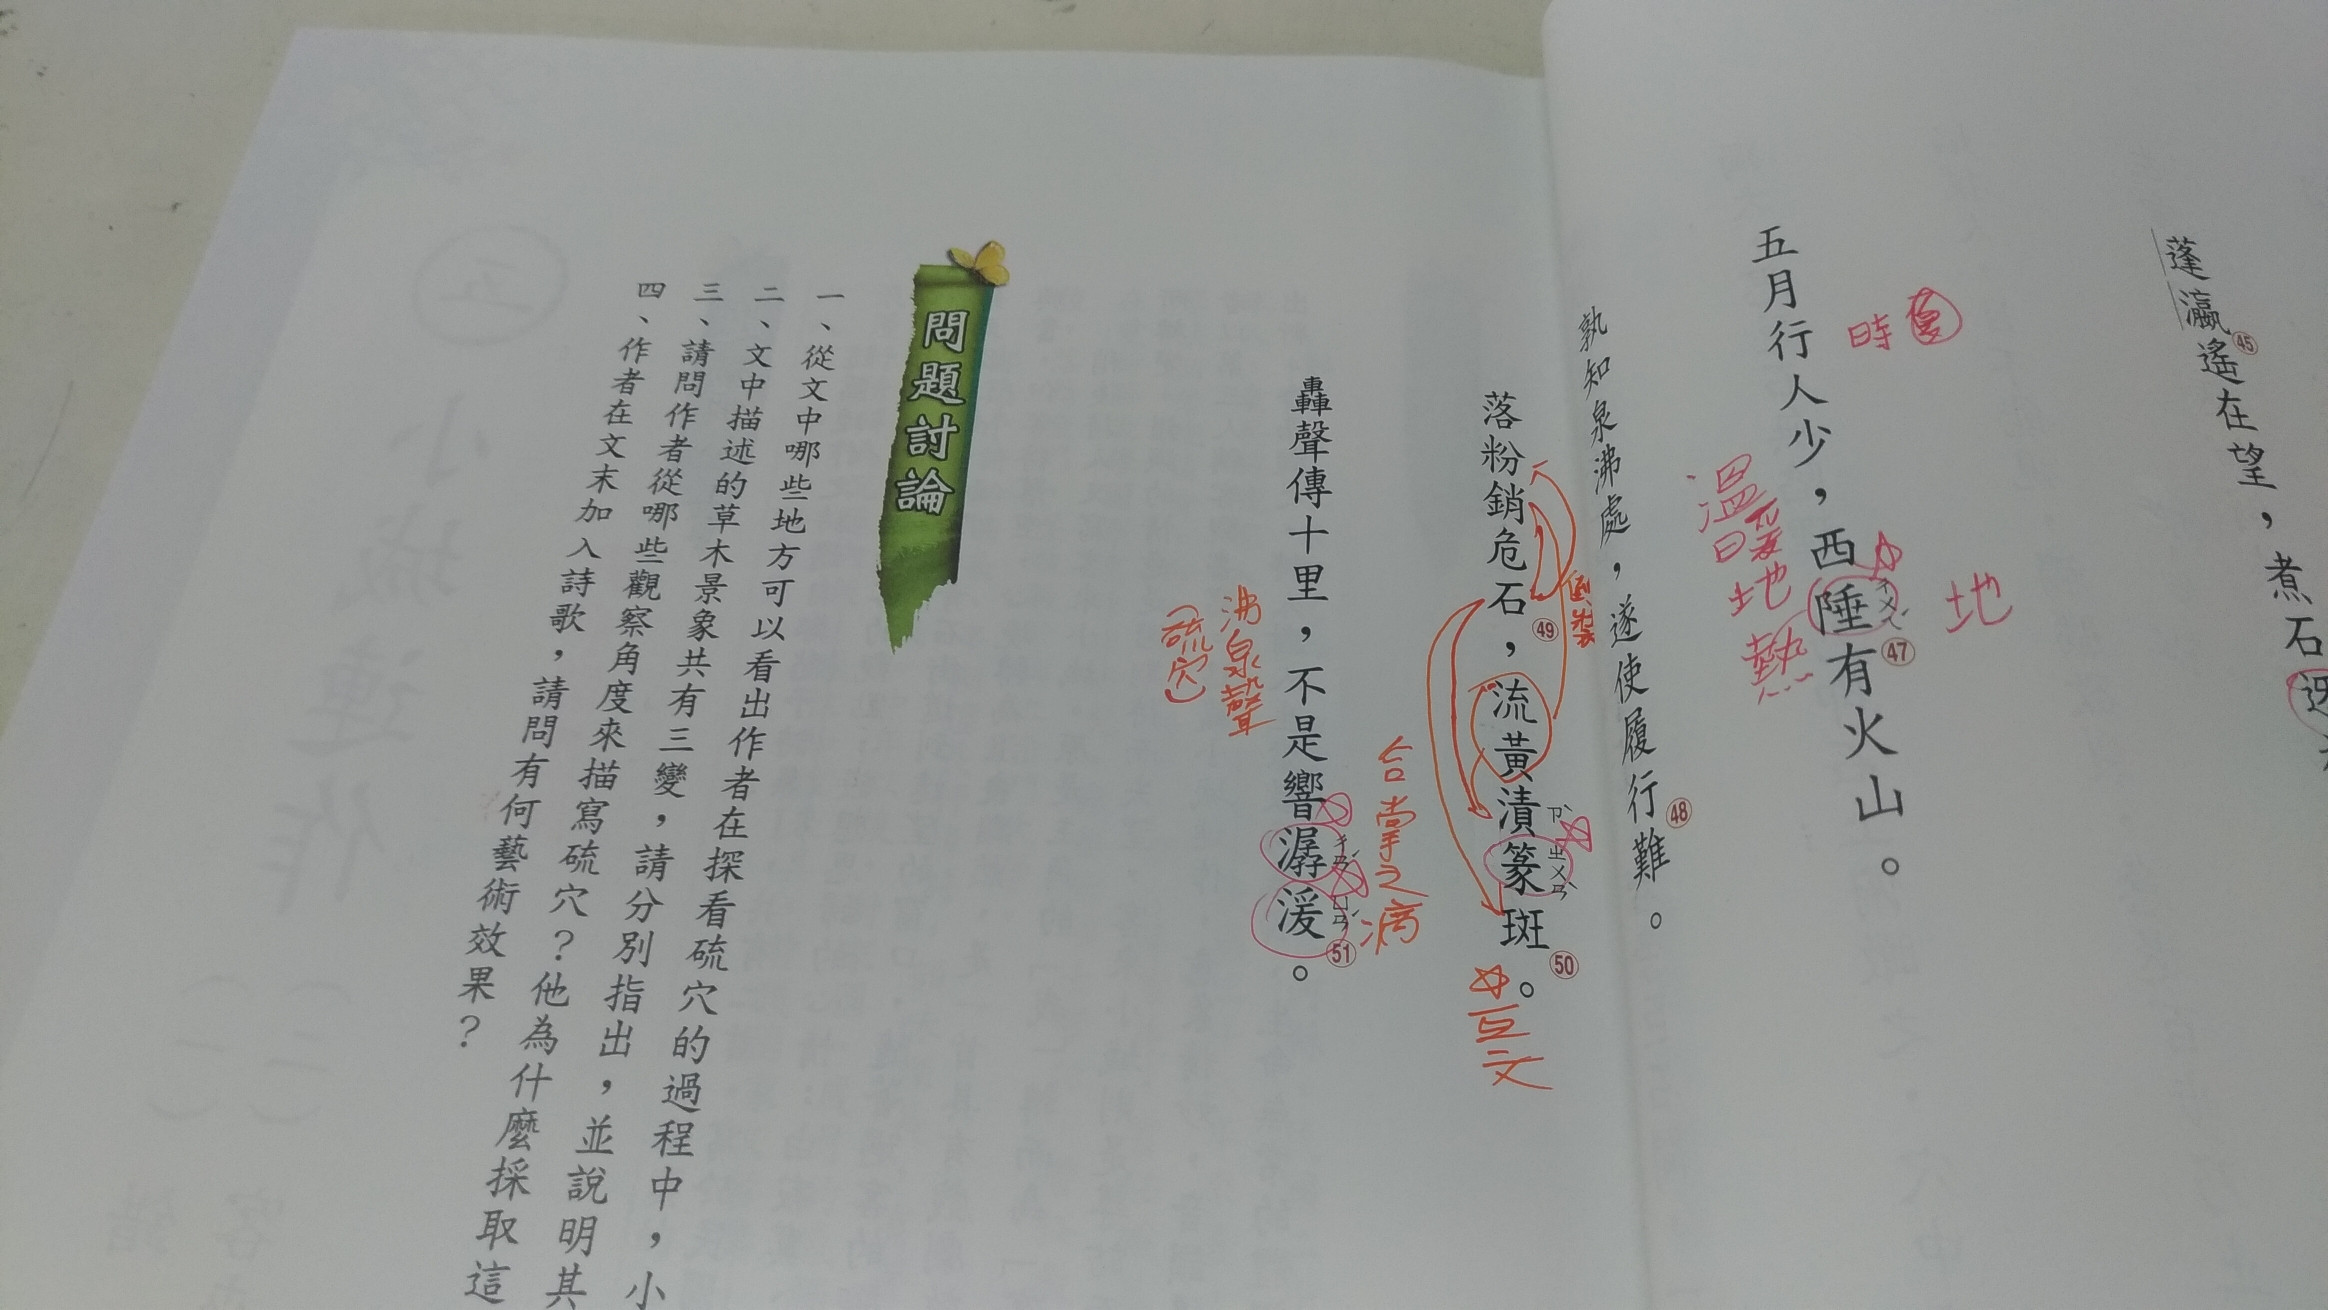 蓬瀛㊺遙在望，煮石
五月行人少，西陲㊼有火山。
時夏
ㄔㄨㄟˊ
地
溫暖
地熱
孰知泉沸處，遂使履行難㊽。
落粉銷危石㊾，流黃漬篆斑㊿。
倒裝
ㄗˋ
ㄓㄨㄢˋ
互文
轟聲傳十里，不是響潺湲51。
ㄔㄢˊ
ㄩㄢˊ
沸泉聲
(硫穴)
問題討論
一、從文中哪些地方可以看出作者在探看硫穴的過程中，小
二、文中描述的草木景象共有三變，請分別指出，並說明其
三、請問作者從哪些觀察角度來描寫硫穴？他為什麼採取這
四、作者在文末加入詩歌，請問有何藝術效果？